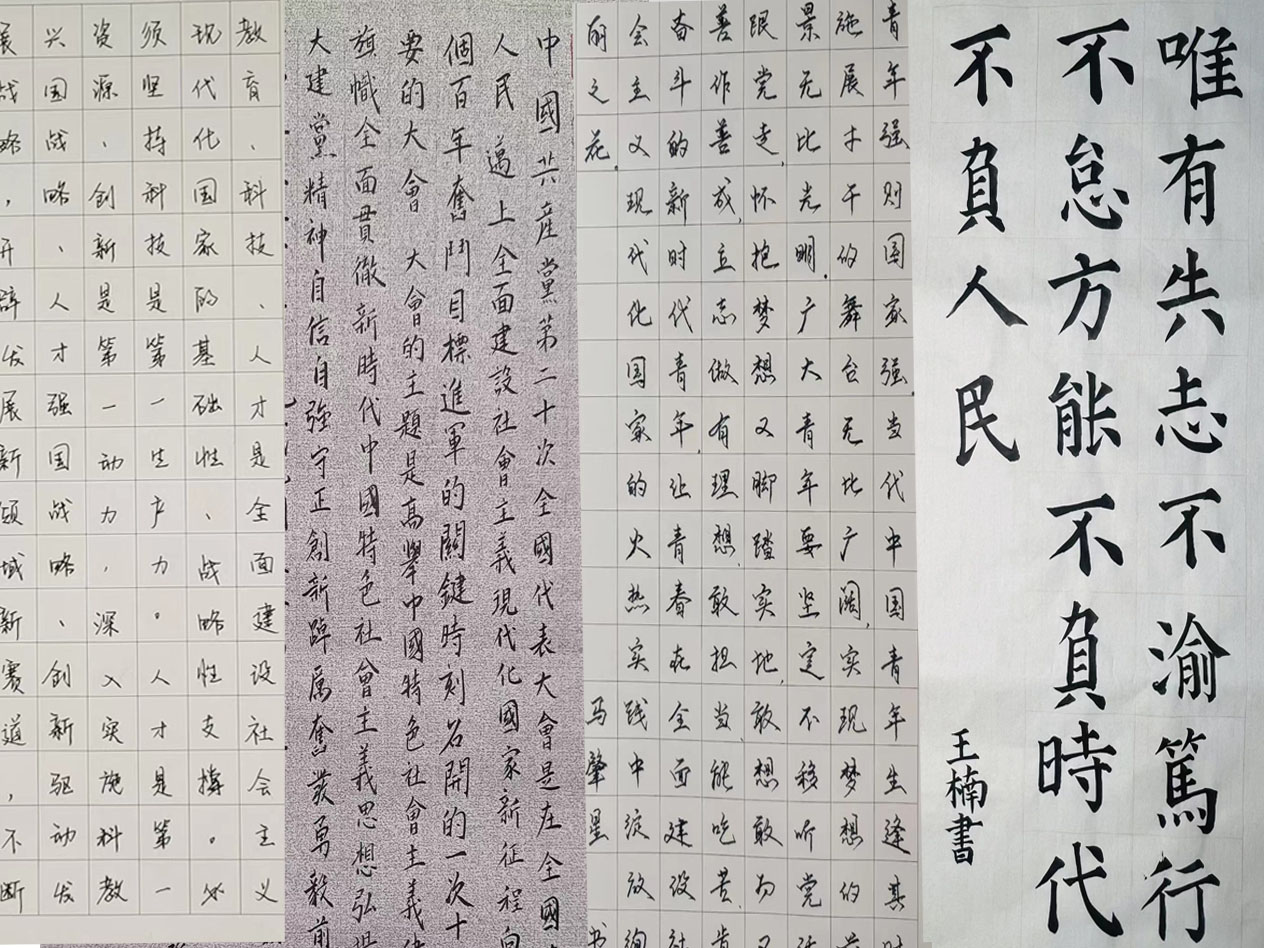 唯有共志不渝篤行
不怠方能不負時代
不負人民
王楠書
青年强则国家强。当代中国青年生逢其时
施展才干的舞台无比广阔,实现梦想的前
景无比光明。广大青年要坚定不移听党话
跟党走,怀抱梦想又脚踏实地,敢想敢为又
善作善成,立志做有理想、敢担当、能吃苦、肯
奋斗的新时代青年,让青春在全面建设社
会主义现代化国家的火热实践中绽放绚
丽之花。
马肇星书
中國共産黨第二十次全國代表大會是在全國
人民邁上全面建設社會主義現代化國家新征程向
個百年奮鬥目標進軍的關鍵時刻召開的一次十
要的大會大會的主題是高舉中國特色社會主義偉
旗幟全面貫徹新時代中國特色社會主義思想弘揚
大建黨精神自信自強守正創新踔厲奮發勇毅前
教育、科技、人才是全面建设社会主义
现代化国家的基础性、战略性支撑。必
须坚持科技是第一生产力。人才是第一
资源、创新是第一动力,深入实施科教
兴国战略、人才强国战略、创新驱动发
展战略,开辟发展新领域新赛道,不断